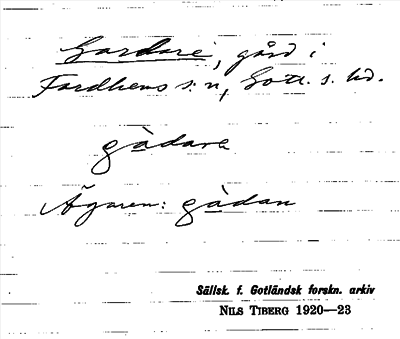 Gardare, gård i
Fardhems s:n, Gotl. s. hd.
gàdara
Ägaren: gàdan
Sällsk. f. Gotländsk forskn. arkiv
NILS TIBERG 1920—23